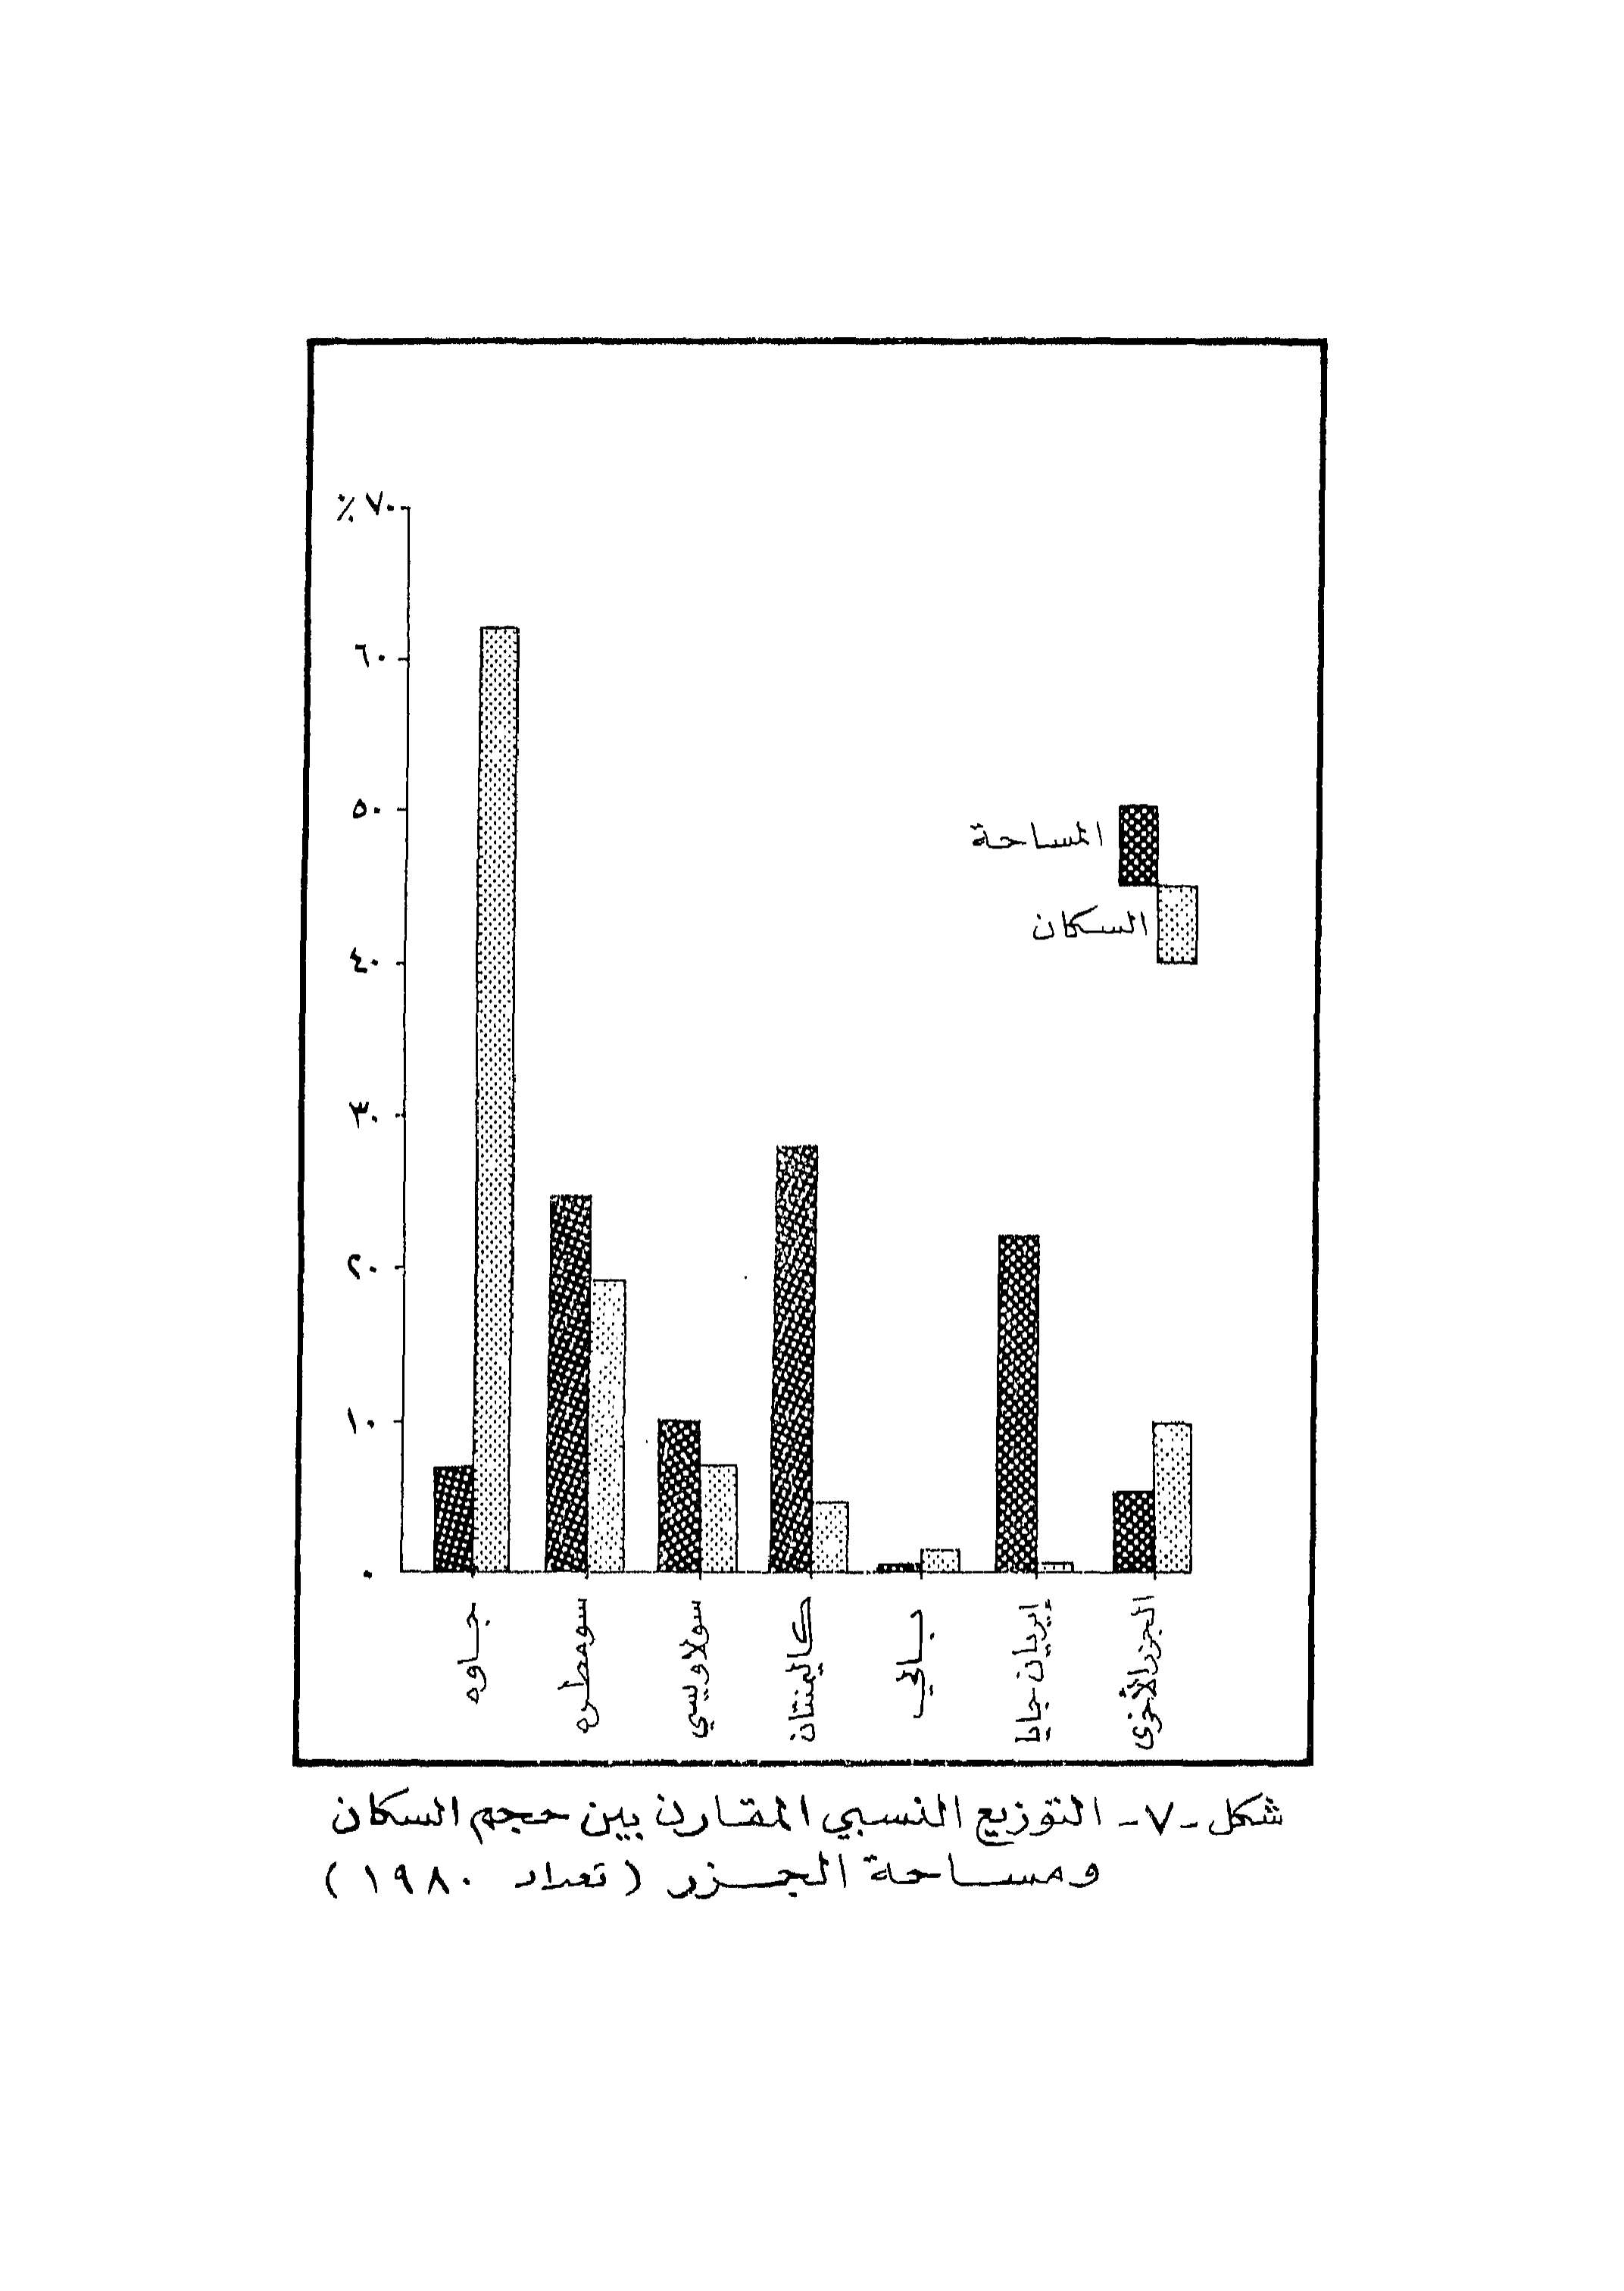 ٪ ٧٠
٦٠
٥٠
٤٠
٣٠
٢٠
١٠
٠
المساحة
السكان
جاوه
سومطره
سولاويسي
كاليمنتان
بالي
إيريان جايا
الجزر الأخرى
شكل -٧- التوزيع النسبي المقارن بين حجم السكان
ومساحة الجزر ( تعداد ١٩٨٠ )